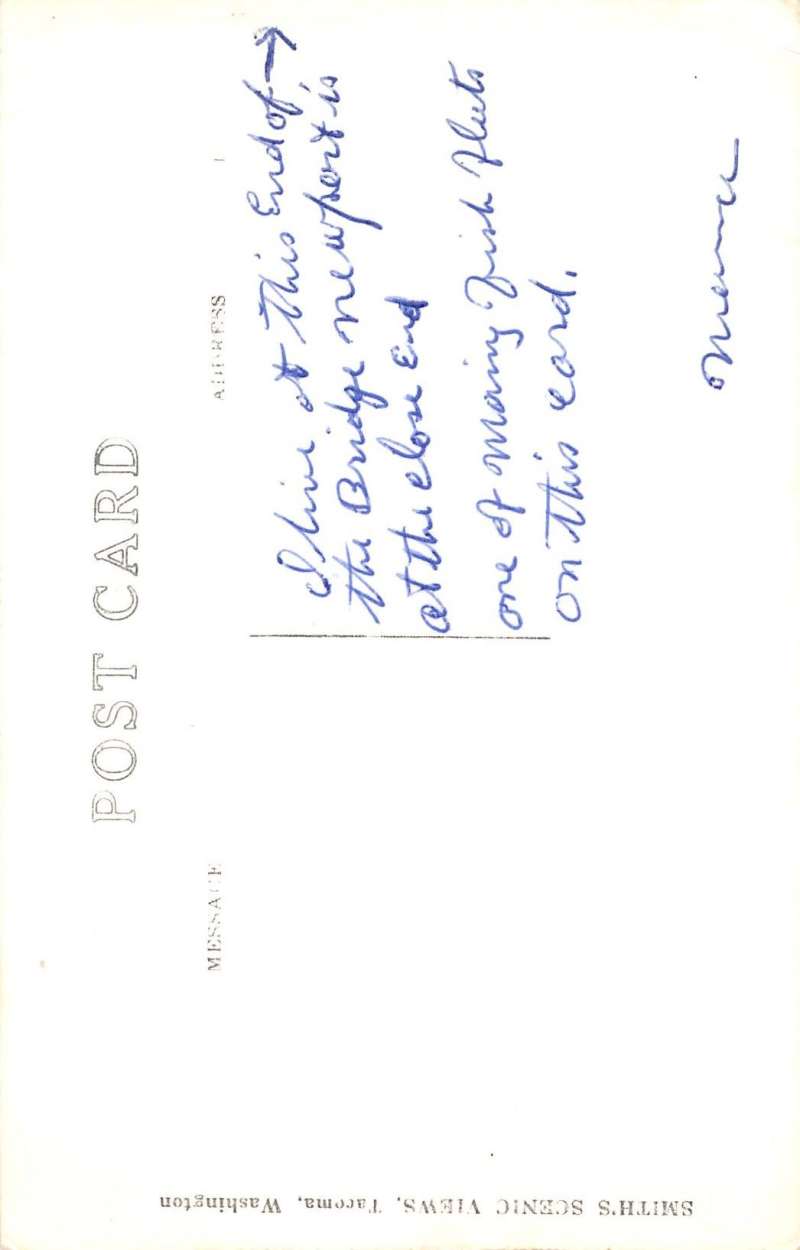 POST CARD
MESSAGE
ADDRESS
I live at This End of →
the Bridge newport is
at the close End
one of Many Fish fleets
on this card.
SMITH'S SCENIC VIEWS, Tacoma, Washington